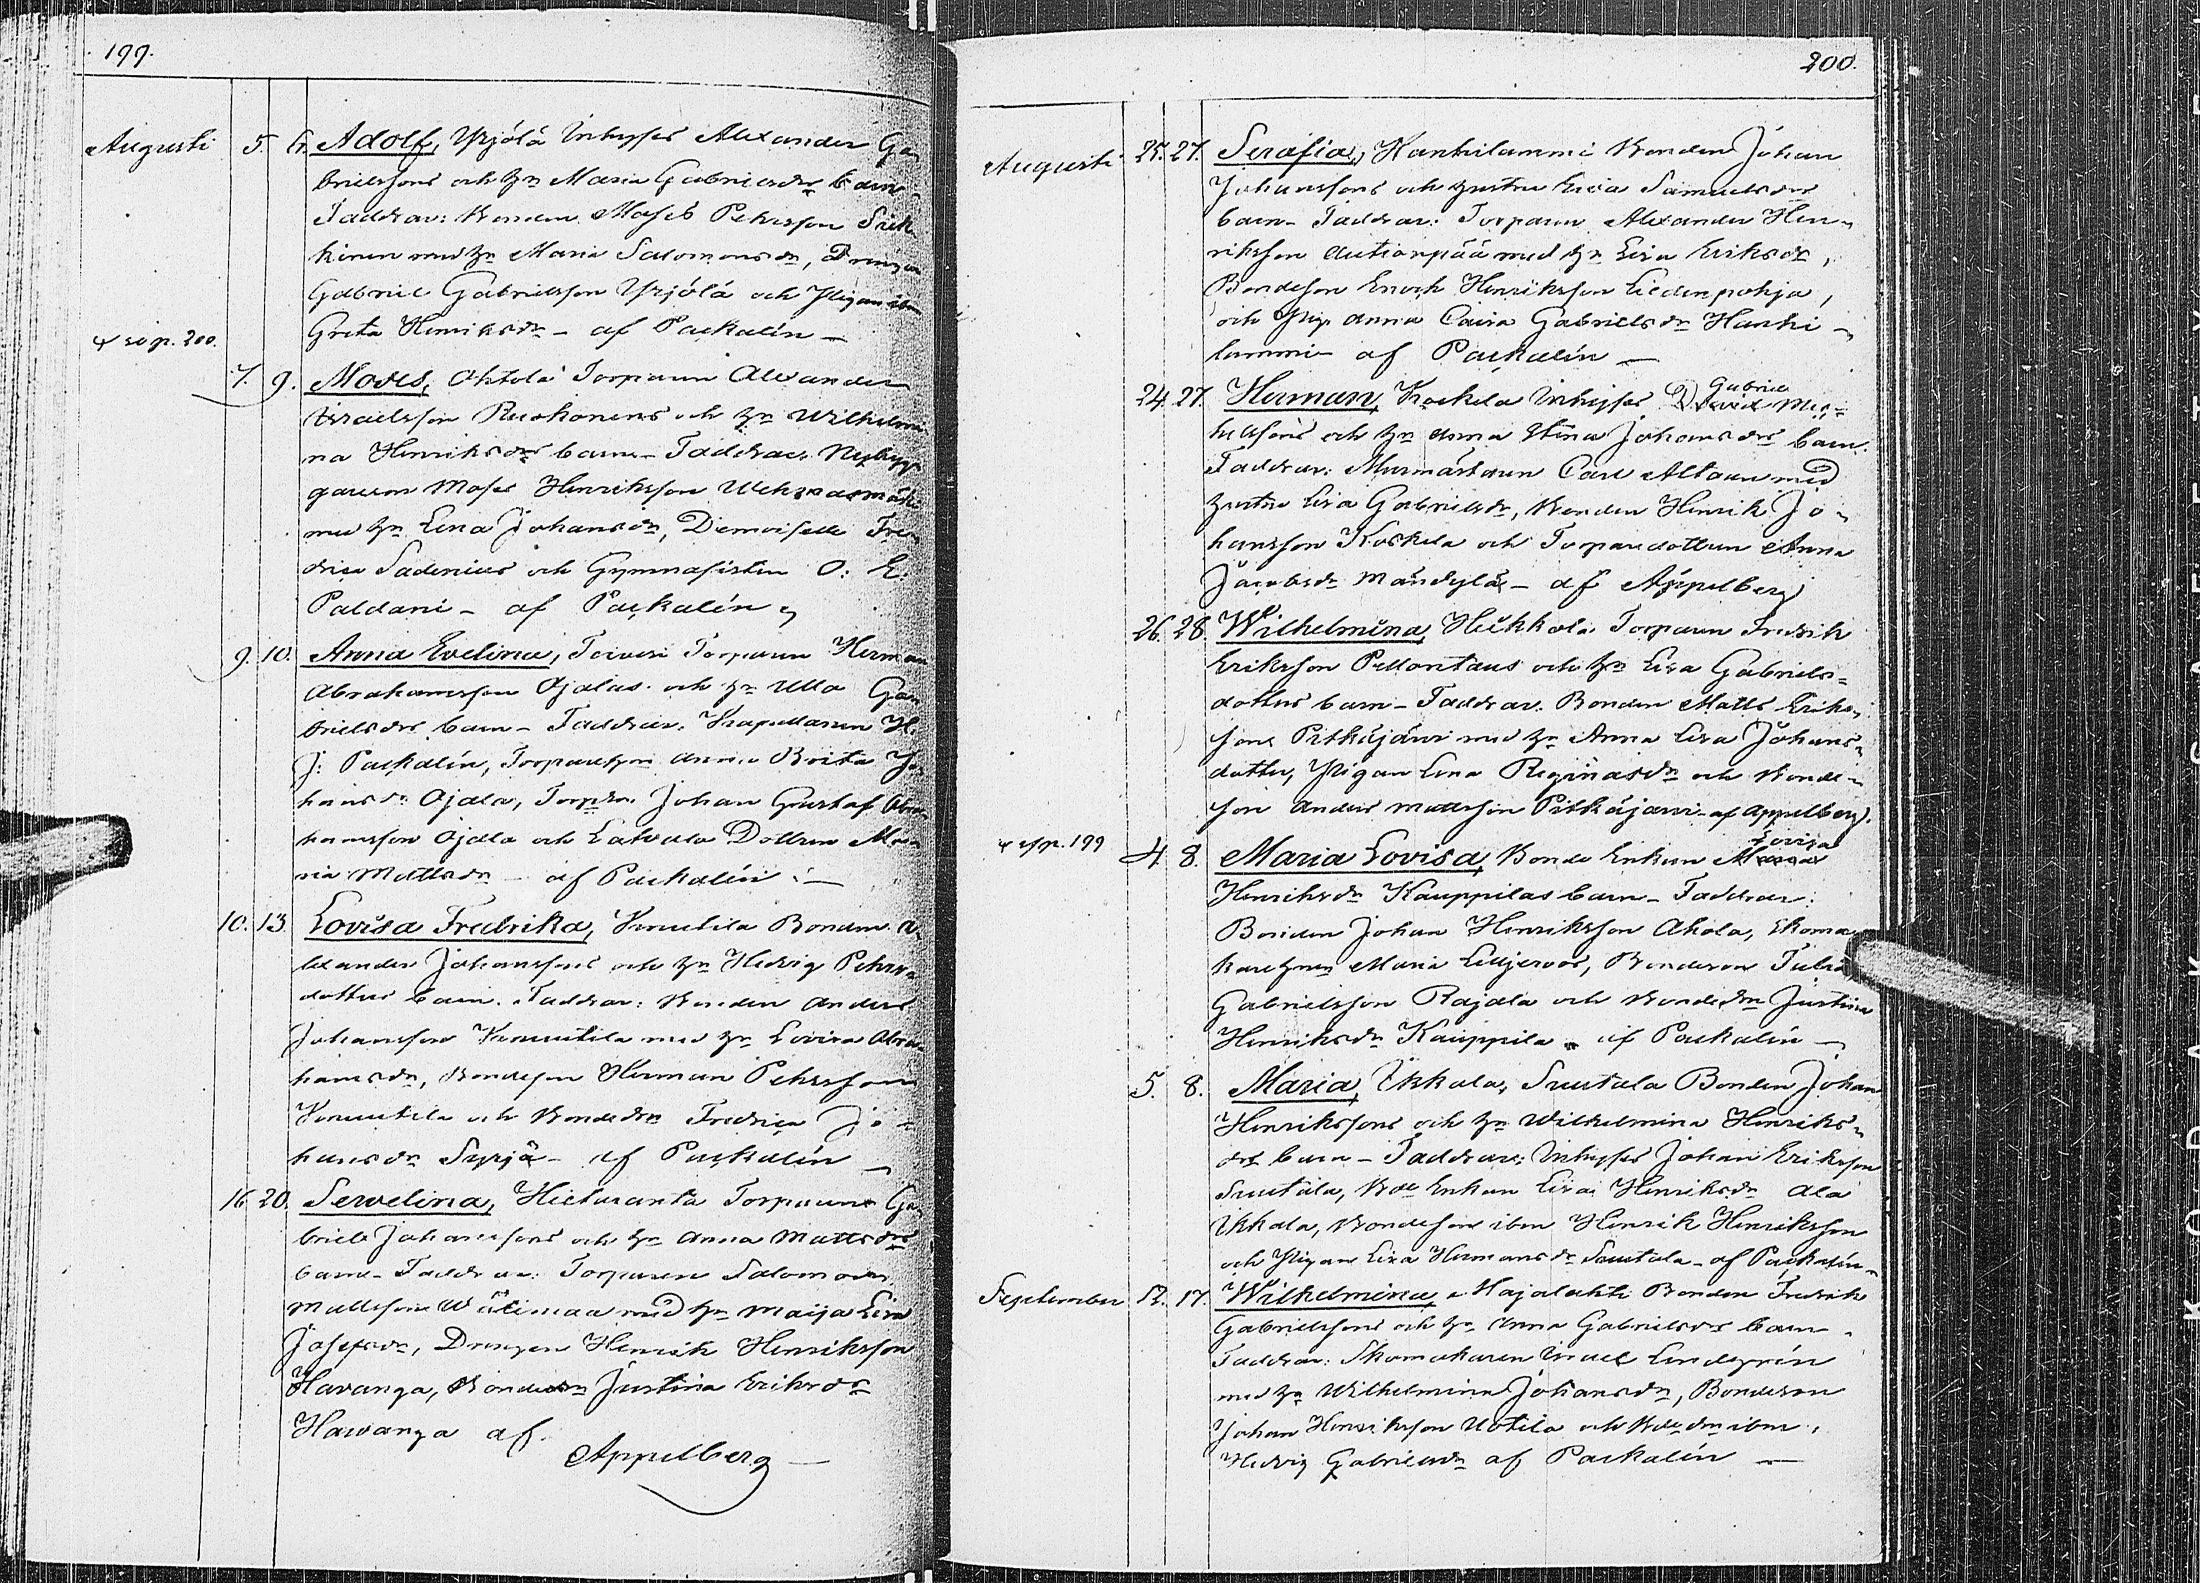 199.
Augusti 5. 6. Adolf, Yrjölä Inhyses Alexander Ga-
brielssons och hn Maria Gabrielsdrs barn-
Faddrar: Bonden Moses Pehrsson
kinen med hn Maria Salomonsdr, Drängen
Gabriel Gabrielsson Yrjölä och Pigan ibm
Greta Henriksdr - af Packalén -
se p. 200.
7. 9. Moses, Ahtola Torparen Alexander
Israelsson Ruokonens och hn Wilhelmi
na Henriksdrs barn - Faddrar: Nybyg-
garen Moses Henriksson
med hn Lena Johansdr, Demoiselle Fre-
drica Sadenius och Gymnasisten O: E.
Paldani - af Packalén
9. 10. Anna Evelina, Toiveri Torparen Herman
Abrahamsson Ojalas och hn Ulla Ga-
brielsdrs barn - Faddrar: Kapellanen H.
J: Packalén, Torparehn Anna Brita Jo-
hansdr Ojala, Torpson Johan Gustaf Abra-
hamsson Ojala och Latvala Dottren Ma-
ria Mattsdr - af Packalén -
10. 13. Lovisa Fredrika, Knuutila Bonden A-
lexander Johanssons och hn Hedvig Pehrs-
dotters barn. Faddrar: Bonden Anders
Johansson Knuutila med hn Lovisa Abra-
hamsdr, Bondeson Herman Pehrsson
Knuutila och Bondedrn Fredrica Jo-
hansdr Syrjä - af Packalén -
16. 20. Sevelina, Hietaranta Torparen Ga-
briel Johanssons och hn Anna Mattsdrs
barn - Faddrar: Torparen Salomon
Mattsson Wälimaa med hn Maija Lisa
Josefsdr, Drängen Henrik Henriksson
Havanga, Bondedrn Justina Eriksdr
Havanga af
Appelberg
200.
Augusti 25. 27. Serafia, Hankilammi Bonden Johan
Johanssons och hustru Lisa Samuelsdrs
barn - Faddrar: Torparen Alexander Hen-
riksson Autionpää med hn Lisa Eriksdr,
Bondeson Enoch Henriksson Liedenpohja,
och Pig. Anna Caisa Gabrielsdr Hanki-
lammi - af Packalén -
24. 27. Herman, Koskela Inhyses David Gabriel Mic-
helssons och hn Anna Stina Johansdrs barn.
Faddrar: Murmästaren Carl Altaun med
hustru Lisa Gabrielsdr, Bonden Henrik Jo-
hansson Koskela och Torparedottren Anna
Jacobsdr Mändylä - af Appelberg
26. 28. Wilhelmina, Heikkola Torparen Fredrik
Eriksson Peltoniaus och hn Lisa Gabriels-
dotters barn - Faddrar: Bonden Matts Eriks-
son Pitkäjärvi med hn Anna Lisa Johans-
dotter, Pigan Lena Reginasdr och Bonde-
son Anders Mattsson Pitkäjärvi - af Appelberg.
se p. 199
4. 8. Maria Lovisa, Bonde Enkan Maria Lovisa
Henriksdr Kauppilas barn - Faddrar:
Bonden Johan Henriksson Ahola, Skoma-
karehn Maria Liljeroos, Bondeson
Gabrielsson Rajala och Bondedrn Justina
Henriksdr Kauppila - af Packalén -
5. 8. Maria, Ikkala, Suutala Bonden Johan
Henrikssons och hn Wilhelmina Henriks-
drs barn - Faddrar: Inhyses Johan Eriksson
Suutala, Bde Enkan Lisa Henriksdr Ala
Ikkala, Bondeson ibm Henrik Henriksson
och Pigan Lisa Hermansdr Suutala - af Packalén -
September 12. 17. Wilhelmina, Hajalahti Bonden Fredrik
Gabrielssons och hn Anna Gabrielsdrs barn -
Faddrar: Skomakaren Israel Lindgrén
med hn Wilhelmina Johansdr, Bondeson
Johan Henriksson Uotila och Bdedrn ibm
Hedvig Gabrielsdr af Packalén -